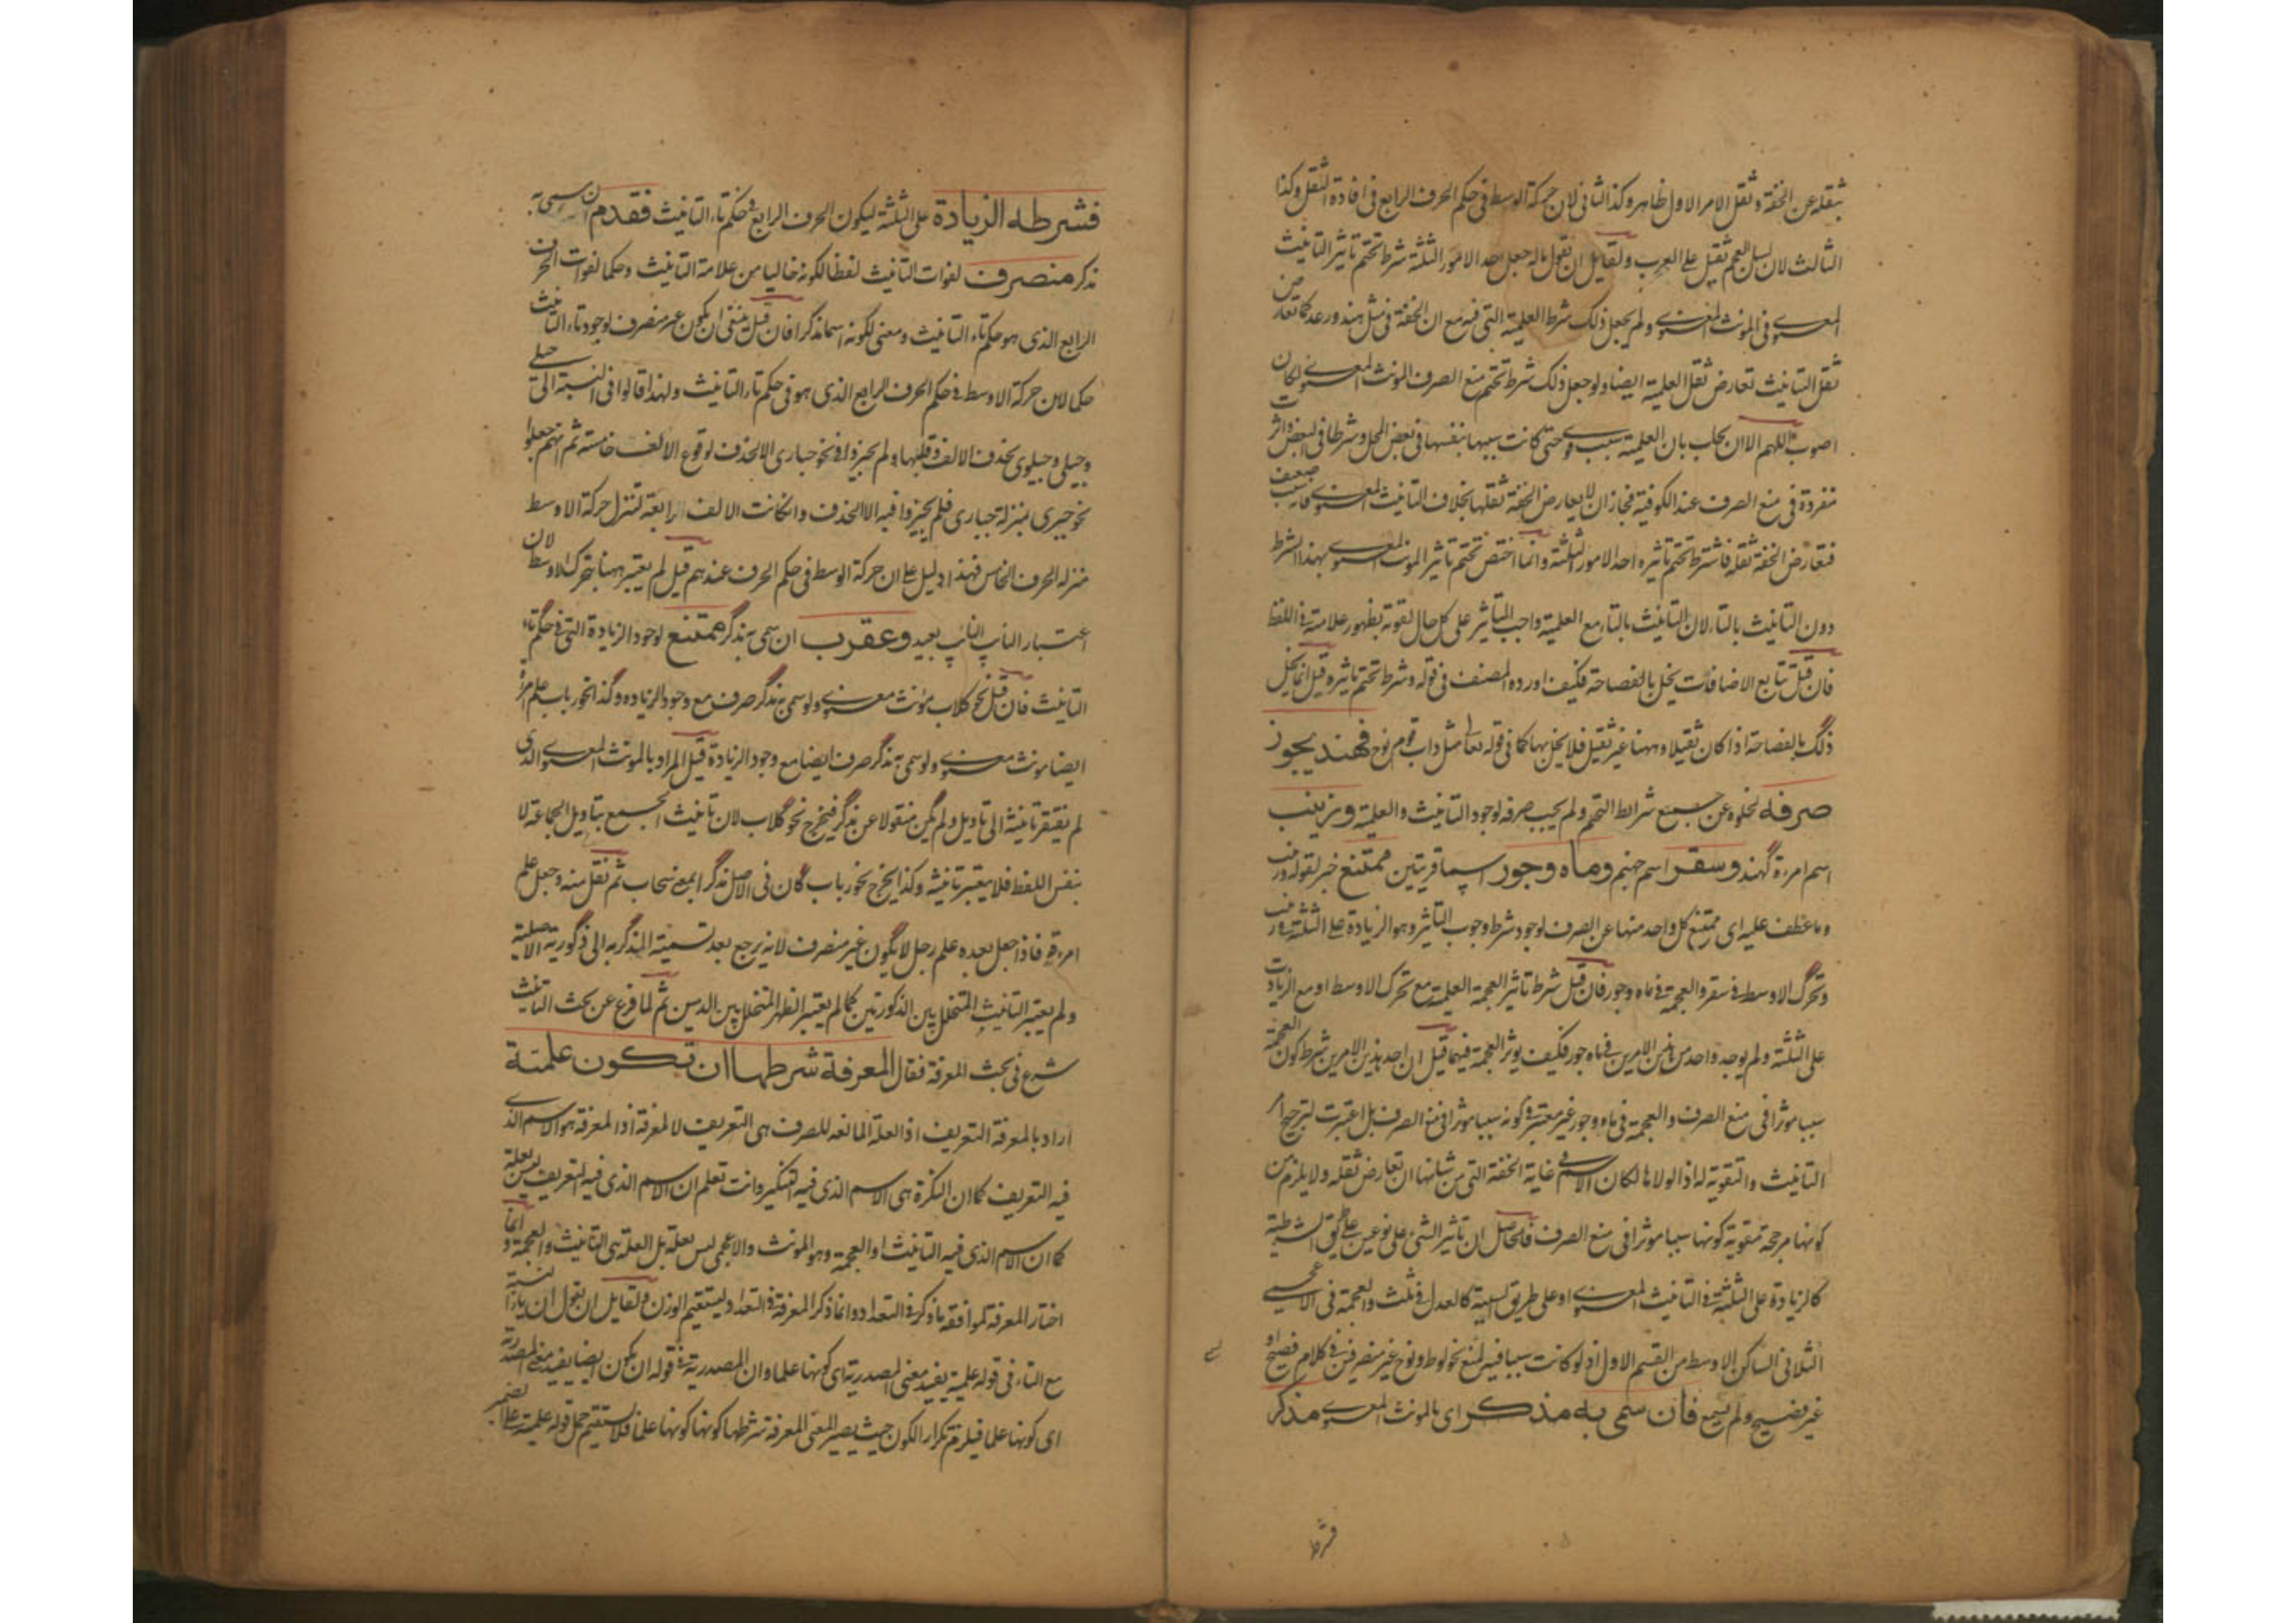 بثقله عن الخفة وثقل الامر الاول ظاهر وكذا الثانى لان حركة الوسط فى حكم الحرف الرابع فى افادة الثقل وكذا
الثالث لان لسان العجم ثقيل على العرب ولقايل ان يقول ما له جعل احد الامور الثلثة شرط تحتم تاثير التانيث
المعنوى فى المونث المعنوى ولم يجعل ذلك شرط العلمية التى فيه مع ان الخفة فى مثل هند ودعد كما تعارض
ثقل التانيث تعارض ثقل العلمية ايضا ولو جعل ذلك شرط تحتم منع الصرف المونث المعنوى لكان
اصوب اللهم الا ان يجاب بان العلمية سبب قوى حتى كانت سببا بنفسها فى بعض المحل وشرطا فى البعض واثرت
مفردة فى منع الصرف عند الكوفية فجاز ان لا يعارض الخفة ثقلها بخلاف التانيث المعنوى فانه سبب ضعيف
فتعارض الخفة ثقله فاشترط تحتم تاثيره احد الامور الثلثة وانما اختص تحتم تاثير المونث المعنوى بهذا الشرط
دون التانيث بالتاء لان التانيث بالتاء مع العلمية واجب التاثير على كل حال لقوته بظهور علامته فى اللفظ
فان قيل تتابع الاضافات يخل بالفصاحة فكيف اورده المصنف فى قوله وشرط تحتم تاثيره قيل انما يخل
ذلك بالفصاحة اذا كان ثقيلا وههنا غير ثقيل فلا يخل بها كما فى قوله تعالى مثل داب قوم نوح فهند يجوز
صرفه لخلوه عن جميع شرائط التحتم ولم يجب صرفه لوجود التانيث والعلمية وزينب
اسم امرءة كهند وسقر اسم جهنم وماه وجور اسما قريتين ممتنع خبر لقوله زينب
وما عطف عليه اى ممتنع كل واحد منها عن الصرف لوجود شرط وجوب التاثير وهو الزيادة على الثلثة فى زينب
وتحرك الاوسط فى سقر والعجمة فى ماه وجور فان قيل شرط تاثير العجمة العلمية مع تحرك الاوسط او مع الزيادة
على الثلثة ولم يوجد واحد من هذين الامرين فى ماه وجور فكيف يوثر العجمة فيهما قيل ان احد هذين الامرين شرط كون العجمة
سببا موثرا فى منع الصرف والعجمة فى ماه وجور غير معتبرة فى كونه سببا موثرا فى منع الصرف بل اعتبرت لترجيح امر
التانيث والتقوية له اذ لولاها لكان الاسم فى غاية الخفة التى من شانها ان تعارض ثقله ولا يلزم من
كونها مرجحة مقوية كونها سببا موثرا فى منع الصرف فالحاصل ان تاثير الشئ على نوعين على طريق الشرطية
كالزيادة على الثلثة فى التانيث المعنوى او على طريق السببية كالعدل فى ثلث والعجمة فى الاعجمى
الثلاثى الساكن الاوسط من القسم الاول اذ لو كانت سببا فيه لمنع نحو لوط ونوح غير منصرفين فى كلام فصيح او
غير فصيح ولم يسمع فان سمى به مذكر اى بالمونث المعنوى مذكر
فشرطه
فشرطه الزيادة على الثلثة ليكون الحرف الرابع فى حكم تاء التانيث فقدم ان سمى به
مذكر منصرف لفوات التانيث لفظا لكونه خاليا من علامة التانيث وحكما لفوات الحرف
الرابع الذى هو حكم تاء التانيث ومعنى لكونه اسما مذكرا فان قيل ينبغى ان يكون غير منصرف لوجود تاء التانيث
حكما لان حركة الاوسط فى حكم الحرف الرابع الذى هو فى حكم تاء التانيث ولهذا قالوا فى النسبة الى حبلى
وحبلى وحبلوى بحذف الالف وقلبها ولم يجيزوا فى نحو حبارى الا بحذف لوقوع الالف خامسة ثم انهم جعلوا
نحو جمزى بمنزلة حبارى فلم يجيزوا فيه الا الحذف وان كانت الالف رابعة لتنزل حركة الاوسط
منزلة الحرف الخامس فهذا دليل على ان حركة الوسط فى حكم الحرف عندهم قيل لم يعتبر ههنا تحرك الاوسط لان
اعتبار النايب النايب بعيد وعقرب ان سمى به مذكر ممتنع لوجود الزيادة التى فى حكم تاء
التانيث فان قيل نحو كلاب مؤنث معنوى ولو سمى به مذكر صرف مع وجود الزيادة وكذا نحو رباب علم امرءة
ايضا مونث معنوى ولو سمى به مذكر صرف ايضا مع وجود الزيادة قيل المراد بالمونث المعنوى الذى
لم يفتقر تانيثه الى تاويل ولم يكن منقولا عن مذكر فيخرج نحو كلاب لان تانيث الجمع بتاويل الجماعة لا
بنفس اللفظ فلا يعتبر تانيثه وكذا يخرج نحو رباب كان فى الاصل مذكرا بمعنى سحاب ثم نقل منه وجعل علم
امرءة فاذا جعل بعده علم رجل لا يكون غير منصرف لانه يرجع بعد تسمية المذكر به الى ذكوريته الاصلية
ولم يعتبر التانيث المتخلل بين الذكورتين كما لم يعتبر الطهر المتخلل بين الدمين ثم لما فرغ عن بحث التانيث
شرع فى بحث المعرفة فقال المعرفة شرطها ان تكون علمية
اراد بالمعرفة التعريف اذ العلة المانعة للصرف هى التعريف لا المعرفة اذ المعرفة هو الاسم الذى
فيه التعريف كما ان النكرة هى الاسم الذى فيه التنكير وانت تعلم ان الاسم الذى فيه التعريف ليس بعلة
كما ان الاسم الذى فيه التانيث او العجمة وهو المونث والاعجمى ليس بعلة بل العلة هى التانيث والعجمة وانما
اختار المعرفة لموافقة ما ذكر فى التعداد وانما ذكر المعرفة فى التعداد ليستقيم الوزن ولقايل ان يقول ان ياء النسبة
مع التاء فى قوله علمية يفيد معنى المصدرية اى كونها علما وان المصدرية فى قوله ان يكون ايضا يفيد معنى المصدرية
اى كونها علما فيلزم تكرار الكون حيث يصير المعنى المعرفة شرطها كونها كونها علما فلا يستقيم حمل قوله علمية على